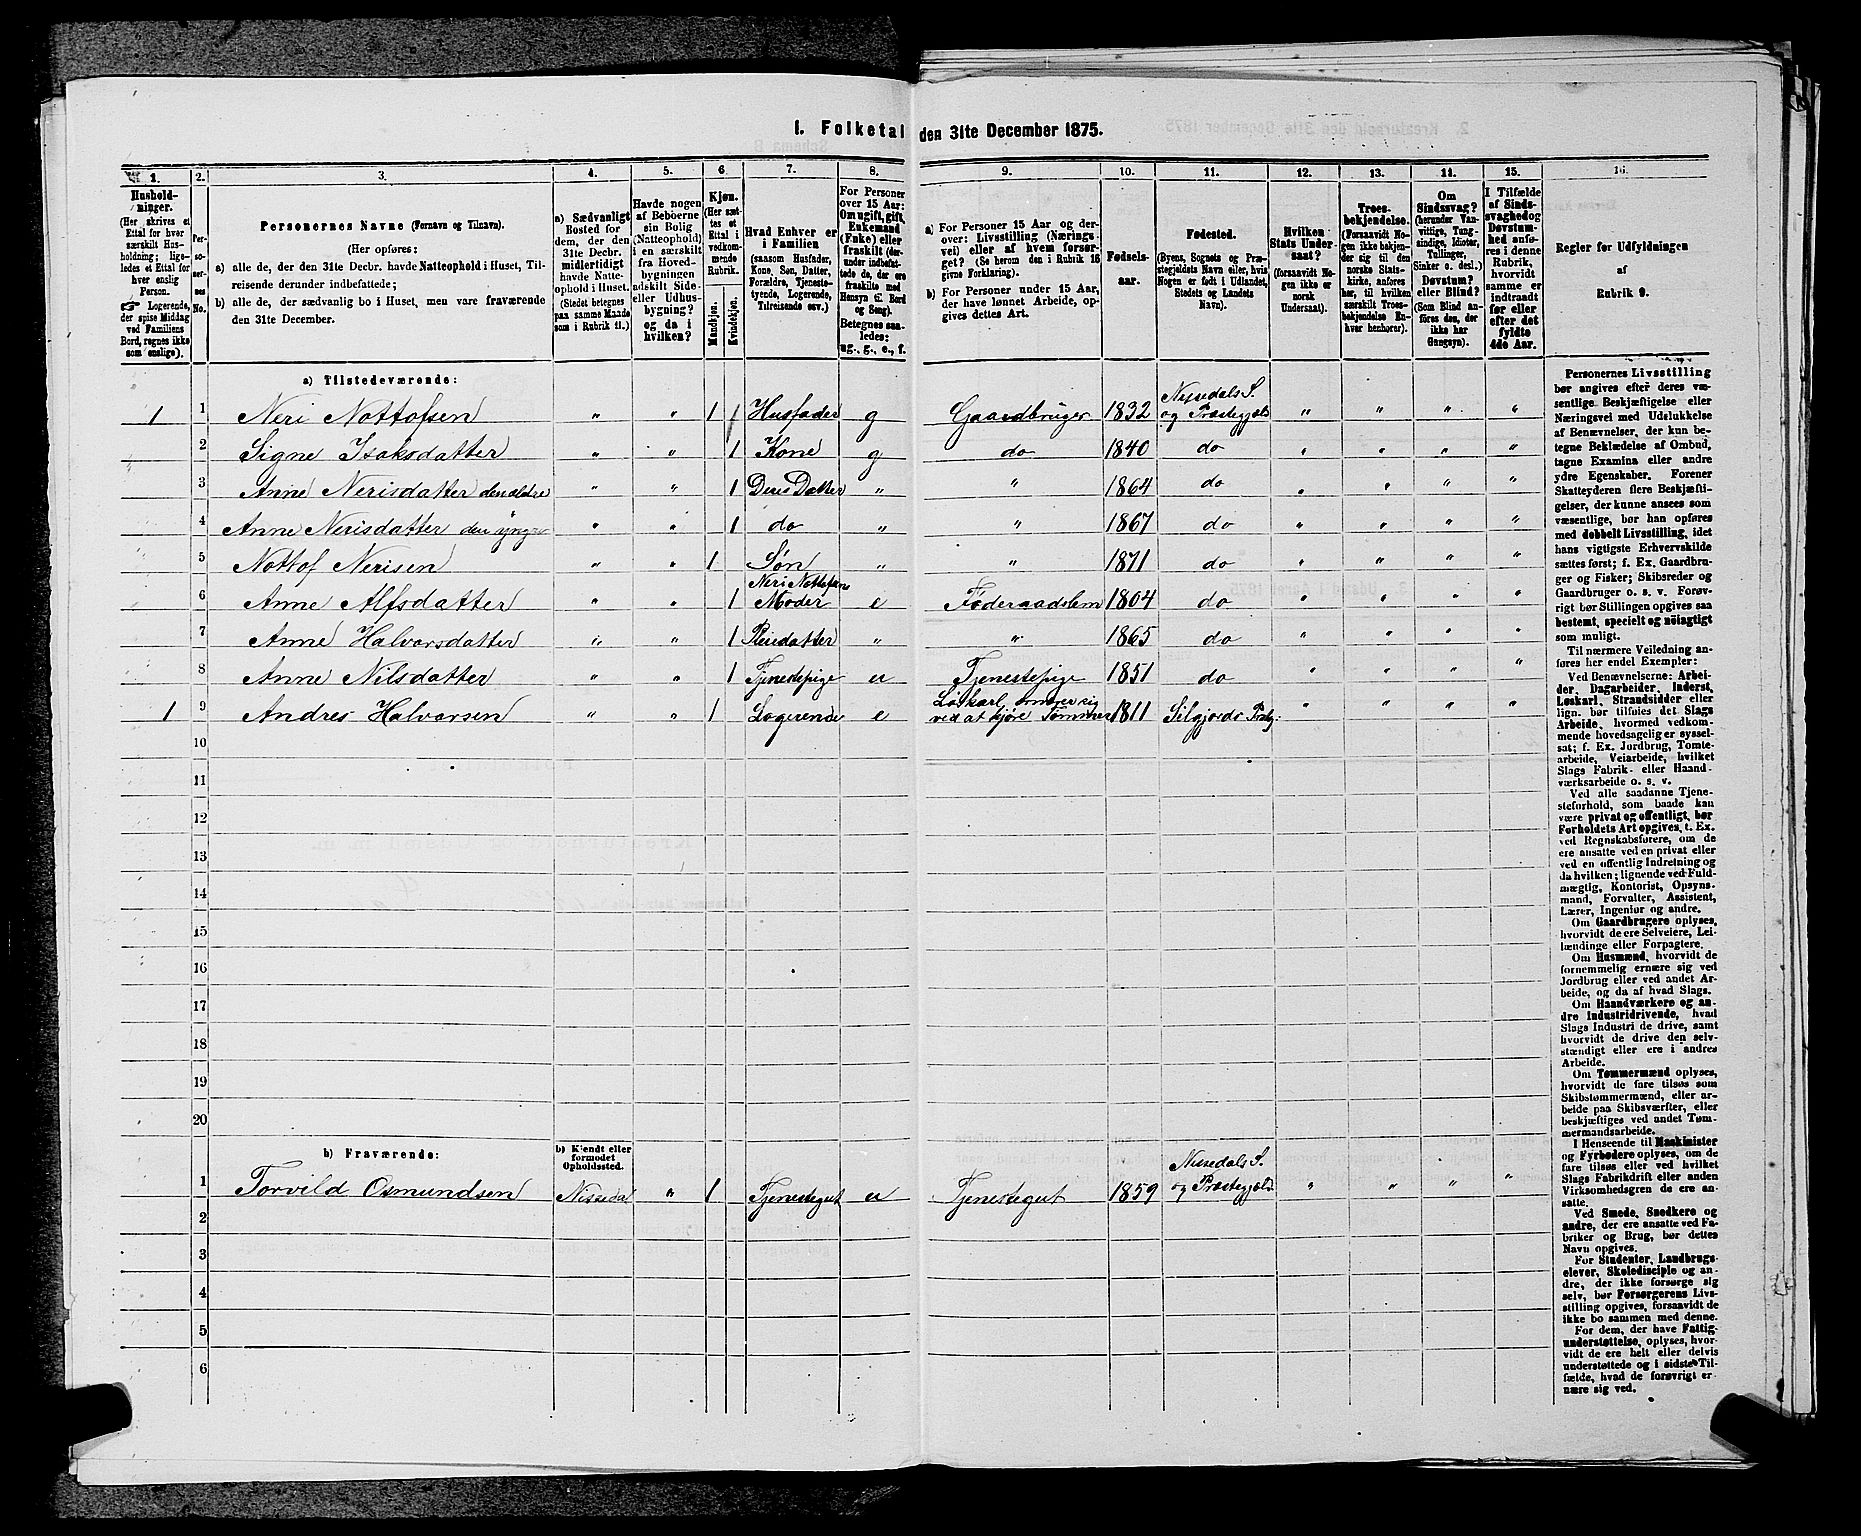 I. Folketal den 31te December 1875.
1. 2. 3. 4. 5. 6. 7. 8. 9. 10. 11. 12. 13. 14. 15. 16.
Hushold-
ninger.
(Her skrives et
Ettal for hver
særskilt Hus-
holdning; lige-
ledes et Ettal for
hver enslig
Person.
☞ Logerende,
der spise Middag
ved Familiens
Bord, regnes ikke
som enslige).
Per-
so-
ner-
nes
No.
Personernes Navne (Fornavn og Tilnavn).
(Her opføres:
a) alle de, der den 31te Decbr. havde Natteophold i Huset, Til-
reisende derunder indbefattede;
b) alle de, der sædvanlig bo i Huset, men vare fraværende
den 31te December.
a) Sædvanligt
Bosted for
dem, der den
31te Decbr.
midlertidigt
havde Natte-
ophold i Huset.
(Stedet betegnes
paa samme Maade
som i Rubrik 11.)
Havde nogen
af Beboerne
sin Bolig
(Natteophold)
i en særskilt
fra Hoved-
bygningen
adskilt Side-
eller Udhus-
bygning?
og da i
hvilken?
Kjøn.
(Her sæt-
tes et
Ettal i
vedkom-
mende
Rubrik.
Mandkjøn.
Kvindekjøn.
Hvad Enhver er
i Familien
(saasom Husfader,
Kone, Søn, Datter,
Forældre, Tjeneste-
tyende, Logerende,
Tilreisende osv.)
For Personer
over 15 Aar:
Om ugift, gift,
Enkemand
(Enke) eller
fraskilt (der-
under indbefat-
tede de, der ere
fraskilte med
Hensyn til Bord
og Seng).
Betegnes saa-
ledes:
ug., g., e., f.
a) For Personer 15 Aar og der-
over: Livsstilling (Nærings-
vei) eller af hvem forsør-
get? (Se herom den i Rubrik 16
givne Forklaring).
b) For Personer under 15 Aar,
der have lønnet Arbeide, op-
gives dettes Art.
Fødsels-
aar.
Fødested.
(Byens, Sognets og Præ-
stegjeldets Navn eller, hvis
Nogen er født i Udlandet,
Stedets og Landets
Navn).
Hvilken
Stats Under-
saat?
(forsaavidt No-
gen ikke er
norsk
Undersaat).
Troes-
bekjendelse.
(Forsaavidt No-
gen ikke bekjen-
der sig til den
norske Stats-
kirke, anføres
her, til hvilken
særskilt Troes-
bekjendelse En-
hver henhører).
Om
Sindssvag?
(herunder Van-
vittige, Tung-
sindige, Idioter,
Tullinger,
Sinker o. desl.)
Døvstum?
eller Blind?
(Som Blind an-
føres den, der
ikke har
Gangsyn).
I Tilfælde
af Sinds-
svaghed og
Døvstum-
hed anfø-
res i denne
Rubrik,
hvorvidt
samme er
indtraadt
før eller
efter det
fyldte
4de Aar.
Regler for Udfyldningen
af
Rubrik 9.
a) Tilstedeværende:
1 1 Neri Nottofsen " " 1 Husfader g Gaardbruger 1832 Nissedals S. og Præstegjeld " " " "
2 Signe Isaksdatter " " 1 Kone g do 1840 do " " " "
3 Anne Nerisdatter den ældre " " 1 Deres Datter " " 1864 do " " " "
4 Anne Nerisdatter den yngre " " 1 do " " 1867 do " " " "
5 Nottof Nerisen " " 1 Søn " " 1871 do " " " "
6 Anne Alfsdatter " " 1 Neri Nottofsens Moder e Føderaadslem 1804 do " " " "
7 Anne Halvorsdatter " " 1 Pleiedatter " " 1865 do " " " "
8 Anne Nilsdatter " " 1 Tjenestepige u Tjenestepige 1851 do " " " "
1 9 Andres Halvorsen " " 1 Logerende e Løskarl, ernærer sig ved at kjøre Tømmer 1811 Silgjords Præstg: " " " "
10
11
12
13
14
15
16
17
18
19
20
b) Fraværende:
b) Kjendt eller
formodet
Opholdssted.
1 Torvild Osmundsen Nissedal " 1 Tjenestegut u Tjenestegut 1859 Nissedals S. og Præstegjeld " " " "
2
3
4
5
6
Personernes Livsstilling
bør angives efter deres væ-
sentlige Beskjæftigelse eller
Næringsvei med Udelukkelse
af Benævnelser, der kun be-
tegne Beklædelse af Ombud,
tagne Examina eller andre
ydre Egenskaber. Forener
Skatteyderen flere Beskjæfti-
gelser, der kunne ansees som
væsentlige, bør han opføres
med dobbelt Livsstilling, idet
hans vigtigste Erhvervskilde
sættes først; f. Ex. Gaardbru-
ger og Fisker; Skibsreder og
Gaardbruger o. s. v. Forøv-
rigt bør Stillingen opgives saa
bestemt, specielt og nöiagtigt
som muligt.
Til nærmere Veiledning an-
føres her endel Exempler:
Ved Benævnelserne: Arbei-
der, Dagarbeider, Inderst,
Løskarl, Strandsidder eller
lign. bør tilføies det Slags
Arbeide, hvormed vedkom-
mende hovedsagelig er syssel-
sat; f. Ex. Jordbrug, Tomte-
arbeide, Veiarbeide, hvilket
Slags Fabrik- eller Haand-
værksarbeide o. s. v.
Ved alle saadanne Tjene-
steforhold, som baade kan
være privat og offentligt, bør
Forholdets Art opgives, t. Ex.
ved Regnskabsførere, om de
ere ansatte ved en privat eller
ved en offentlig Indretning og
da hvilken; lignende ved Fuld-
mægtig, Kontorist, Opsyns-
mand, Forvalter, Assistent,
Lærer, Ingeniør og andre.
Om Gaardbrugere oplyses,
hvorvidt de ere Selveiere, Lei-
lændinge eller Forpagtere.
Om Husmænd, hvorvidt de
fornemmelig ernære sig ved
Jordbrug eller ved andet Ar-
beide, og da af hvad Slags.
Om Haandværkere og an-
dre Industridrivende, hvad
Slags Industri de drive, samt
hvorvidt de drive den selv-
stændigt eller ere i andres
Arbeide.
Om Tømmermænd oplyses,
hvorvidt de fare tilsøs som
Skibstømmermænd, eller ar-
beide paa Skibsværfter, eller
beskjæftiges ved andet Tøm-
mermandsarbeide.
I Henseende til Maskinister
og Fyrbødere oplyses, om de
fare tilsøs eller ved hvilket
Slags Fabrikdrift eller anden
Virksomhedsgren de ere an-
satte.
Ved Smede, Snedkere og
andre, der ere ansatte ved Fa-
briker og Brug, bør dettes
Navn opgives.
For Studenter, Landbrugs-
elever, Skoledisciple og an-
dre, der ikke forsørge sig
selv, bør Forsørgerens Livs-
stilling opgives, forsaavidt de
ikke bo sammen med denne.
For dem, der have Fattig-
understøttelse, oplyses, hvor-
vidt de ere helt eller delvis
understøttede og i sidste Til-
fælde, hvad de forøvrigt er-
nære sig ved.